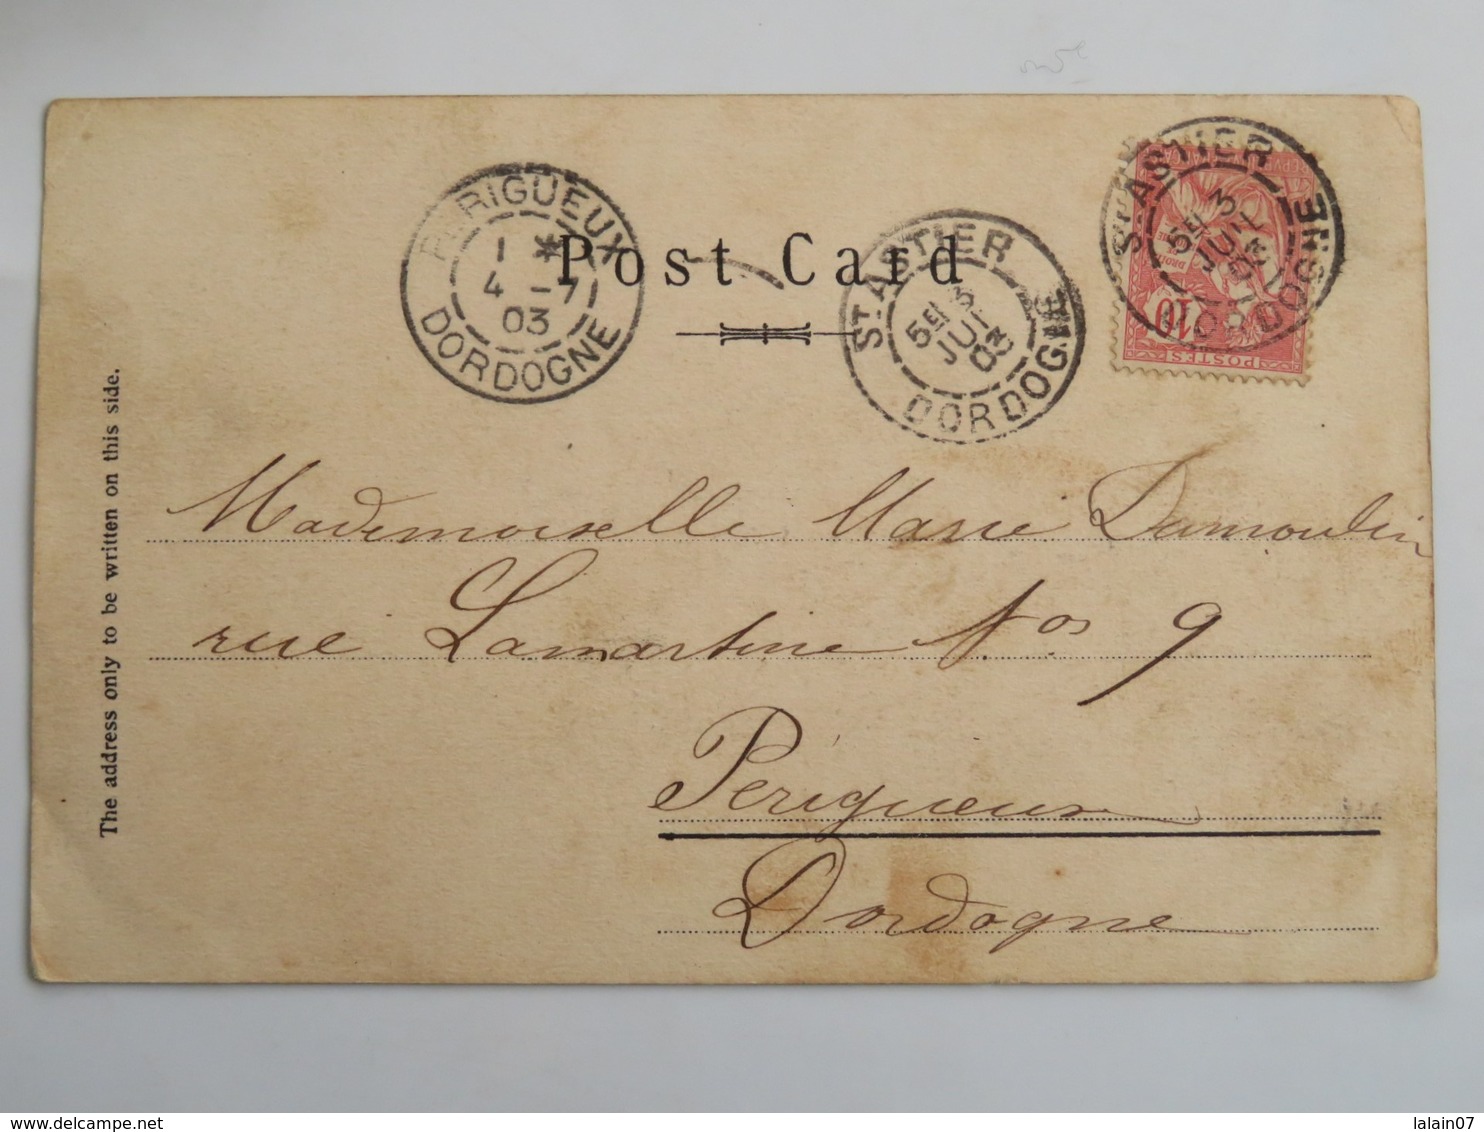 PÉRIGUEUX
1 *
4 -7
03
DORDOGNE
Post Card
ST ASTIER
5E 3
JUIL
03
DORDOGNE
ST ASTIER
5E 3
JUIL
03
DORDOGNE
10
POSTES
The address only to be written on this side.
Mademoiselle Marie Dumoulin
rue Lamartine Nos 9
Périgueux
Dordogne
www.delcampe.net
lalain07